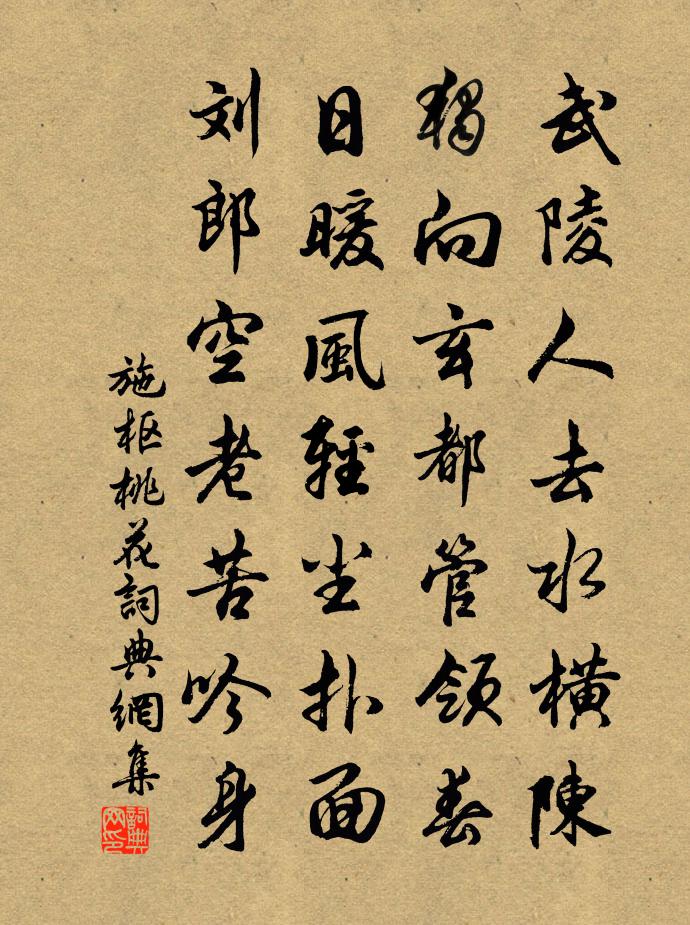 武陵人去水橫陳
獨向玄都管領春
日暖風輕尘扑面
刘郎空老苦吟身
施枢桃花詞典網集
詞典网印